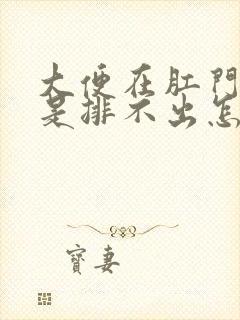 大便在肛門
是排不出怎
寳妻